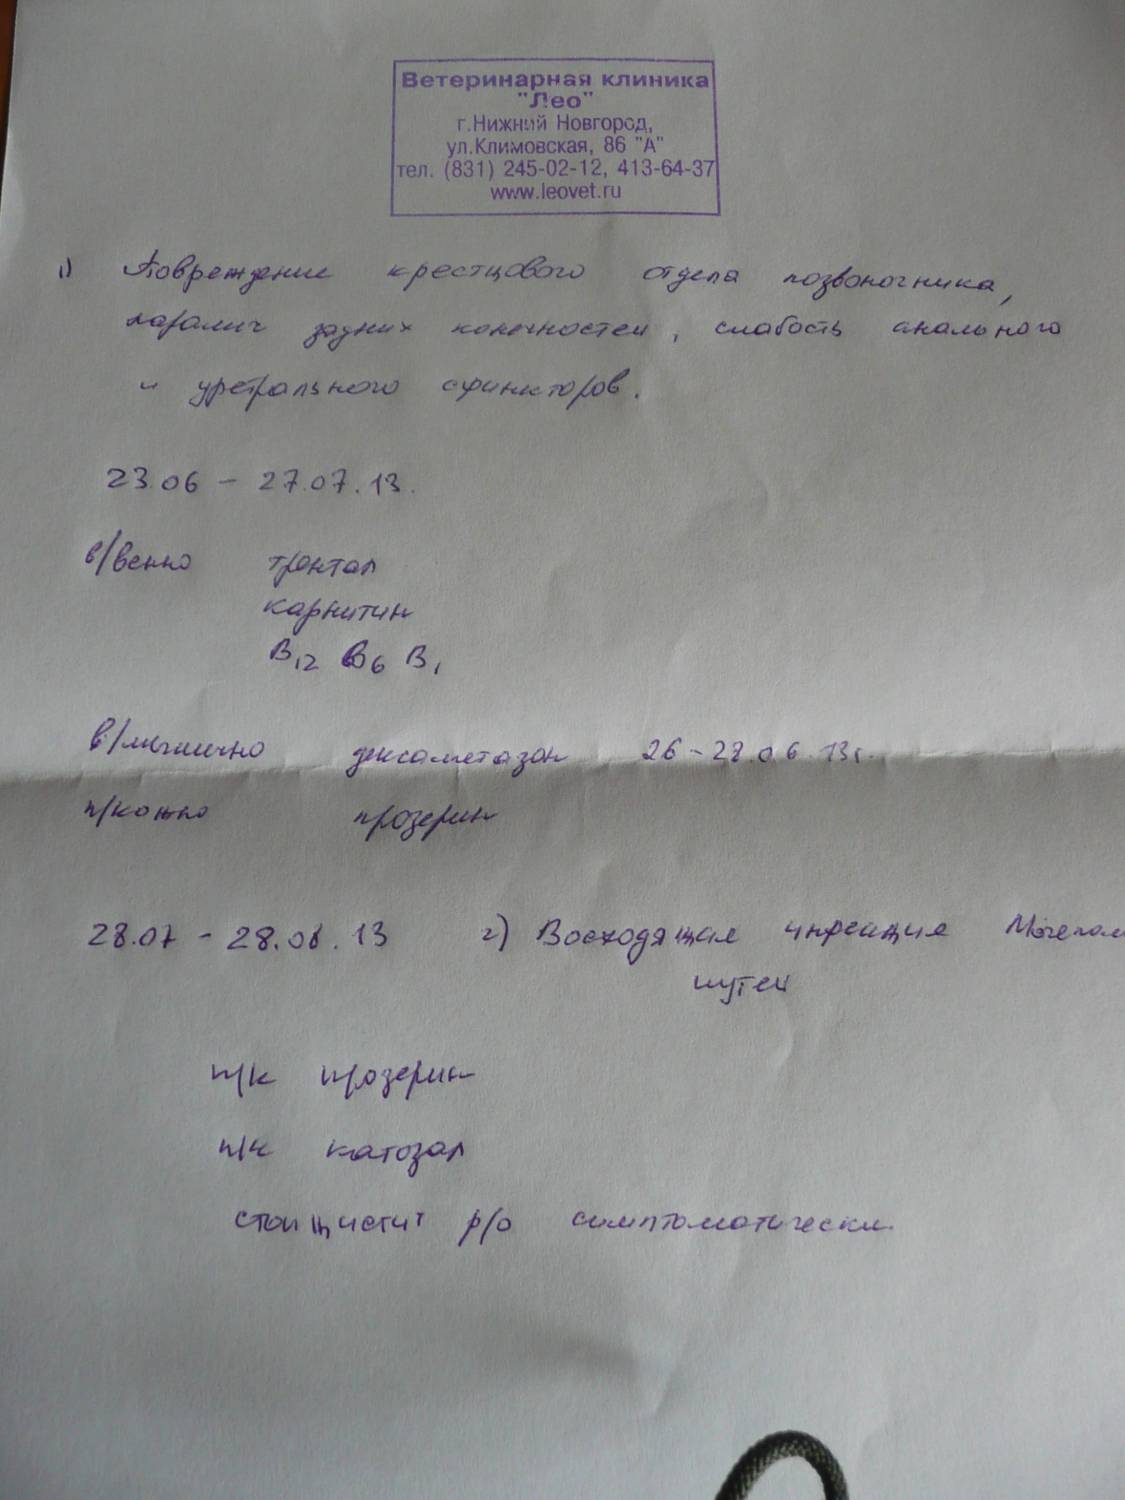 Ветеринарная клиника
"Лео"
г.Нижний Новгород,
ул.Климовская, 86 "А"
тел. (831) 245-02-12, 413-64-37
www.leovet.ru
1) Повреждение крестцового отдела позвоночника,
паралич задних конечностей, слабость анального
и уретрального сфинкторов.
23.06 - 27.07.13.
в/венно трентал
карнитин
B12 B6 B1
в/мышечно дексаметазон 26-28.06.13г.
п/кожно прозерин
28.07 - 28.08.13 2) Восходящая инфекция Мочепол
путей
п/к прозерин
п/к катозал
стоп цистит р/о симптоматически.